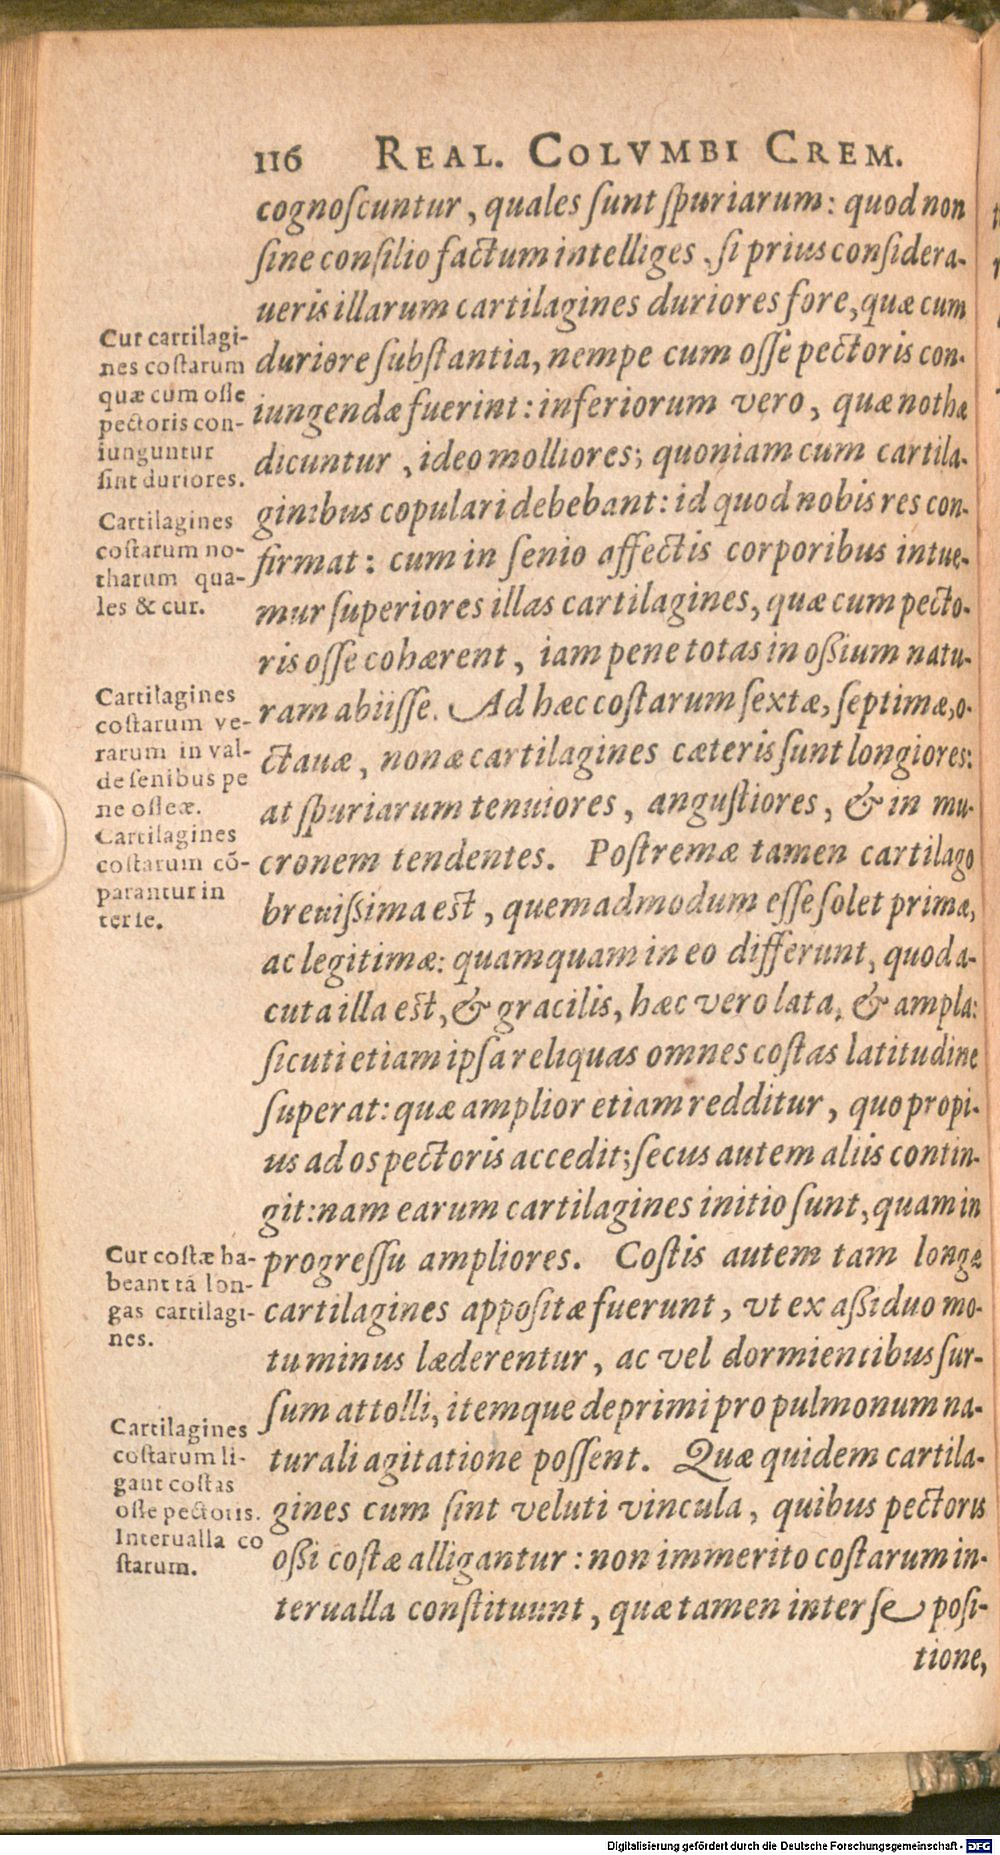 116 REAL. COLVMBI CREM.
cognoſcuntur, quales ſunt ſpuriarum: quod non
ſine conſilio factum intelliges, ſi prius conſidera-
ueris illarum cartilagines duriores fore, quæ cum
duriore ſubſtantia, nempe cum oſſe pectoris con-
iungendæ fuerint: inferiorum vero, quæ nothæ
dicuntur, ideo molliores; quoniam cum cartila-
ginibus copulari debebant: id quod nobis res con-
firmat: cum in ſenio affectis corporibus intue-
mur ſuperiores illas cartilagines, quæ cum pecto-
ris oſſe cohærent, iam pene totas in oßium natu-
ram abiiſſe. Ad hæc coſtarum ſextæ, ſeptimæ, o-
ctauæ, nonæ cartilagines cæteris ſunt longiores:
at ſpuriarum tenuiores, anguſtiores, & in mu-
cronem tendentes. Poſtremæ tamen cartilago
breuißima eſt, quemadmodum eſſe ſolet primæ,
ac legitimæ: quamquam in eo differunt, quod a-
cuta illa eſt, & gracilis, hæc vero lata, & ampla:
ſicuti etiam ipſa reliquas omnes coſtas latitudine
ſuperat: quæ amplior etiam redditur, quo propi-
us ad os pectoris accedit; ſecus autem aliis contin-
git: nam earum cartilagines initio ſunt, quam in
progreſſu ampliores. Coſtis autem tam longæ
cartilagines appoſitæ fuerunt, vt ex aßiduo mo-
tu minus læderentur, ac vel dormientibus ſur-
ſum attolli, itemque deprimi pro pulmonum na-
turali agitatione poſſent. Quæ quidem cartila-
gines cum ſint veluti vincula, quibus pectoris
oßi coſtæ alligantur: non immerito coſtarum in-
terualla conſtituunt, quæ tamen inter ſe poſi-
tione,
Cur cartilagi-
nes coſtarum
quæ cum oſſe
pectoris con-
iunguntur
ſint duriores.
Cartilagines
coſtarum no-
tharum qua-
les & cur.
Cartilagines
coſtarum ve-
rarum in val-
de ſenibus pe
ne oſſeæ.
Cartilagines
coſtarum cõ-
parantur in
ter ſe.
Cur coſtæ ha-
beant tá lon-
gas cartilagi-
nes.
Cartilagines
coſtarum li-
gant coſtas
oſſe pectoris.
Interualla co
ſtarum.
Digitalisierung gefördert durch die Deutsche Forschungsgemeinschaft - DFG